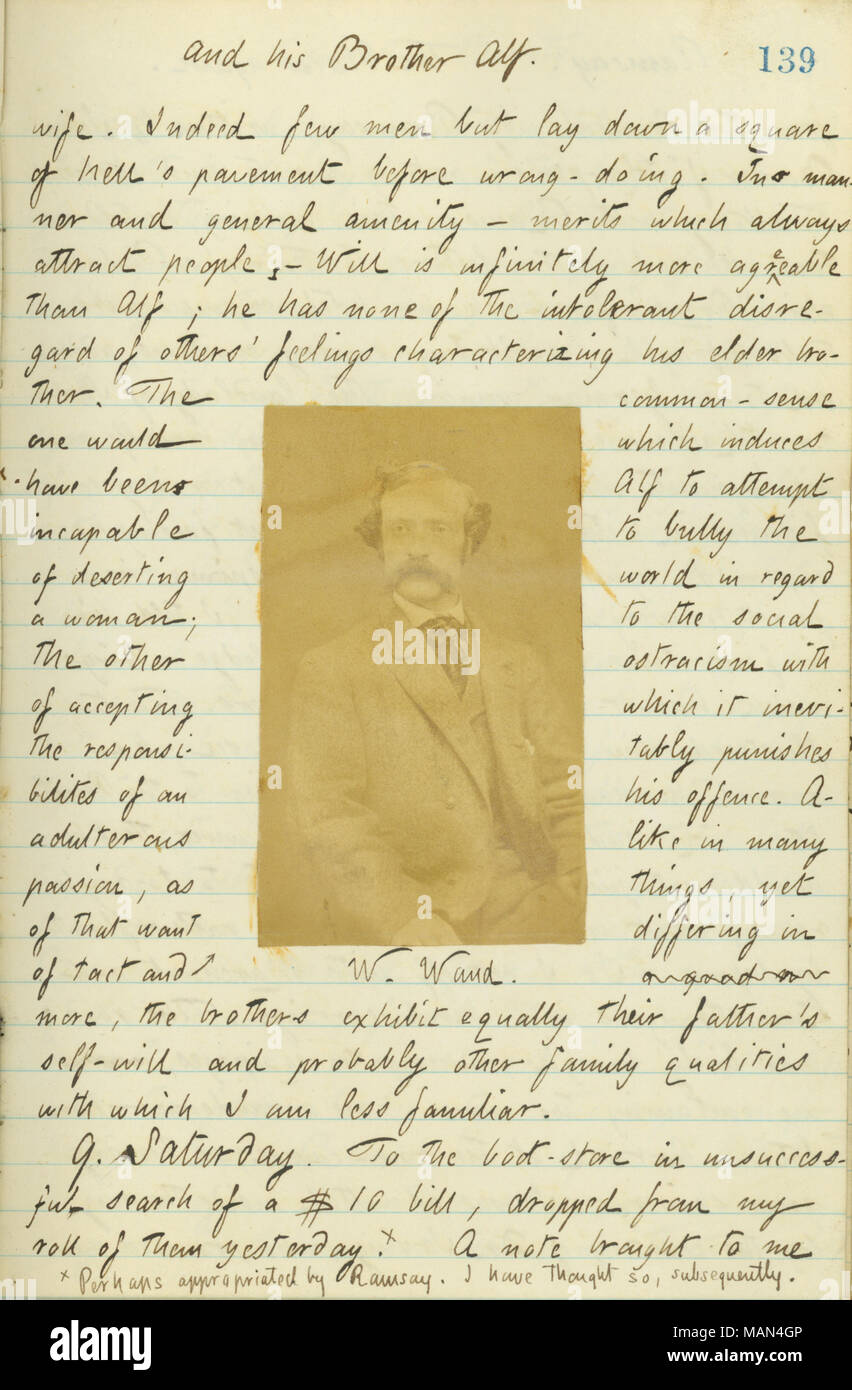 and his Brother Alf.
139
wife. Indeed few men but lay down a square
of hell's pavement before wrong-doing. In man-
ner and general amenity — merits which always
attract people, — Will is infinitely more agreeable
than Alf; he has none of the intolerant disre-
gard of others' feelings characterizing his elder bro-
ther. The
one would
have been
incapable
of deserting
a woman;
the other
of accepting
the responsi-
bilites of an
adulterous
passion, as
of that want
of tact and
common-sense
which induces
Alf to attempt
to bully the
world in regard
to the social
ostracism with
which it inevi-
tably punishes
his offence. A-
like in many
things, yet
differing in
W. Waud.
more, the brothers exhibit equally their father's
self-will and probably other family qualities
with which I am less familiar.
9. Saturday. To the boot-store in unsuccess-
ful search of a $10 bill, dropped from my
roll of them yesterday.x A note brought to me
x Perhaps appropriated by Ramsay. I have thought so, subsequently.
alamy
Image ID: MAN4GP
www.alamy.com